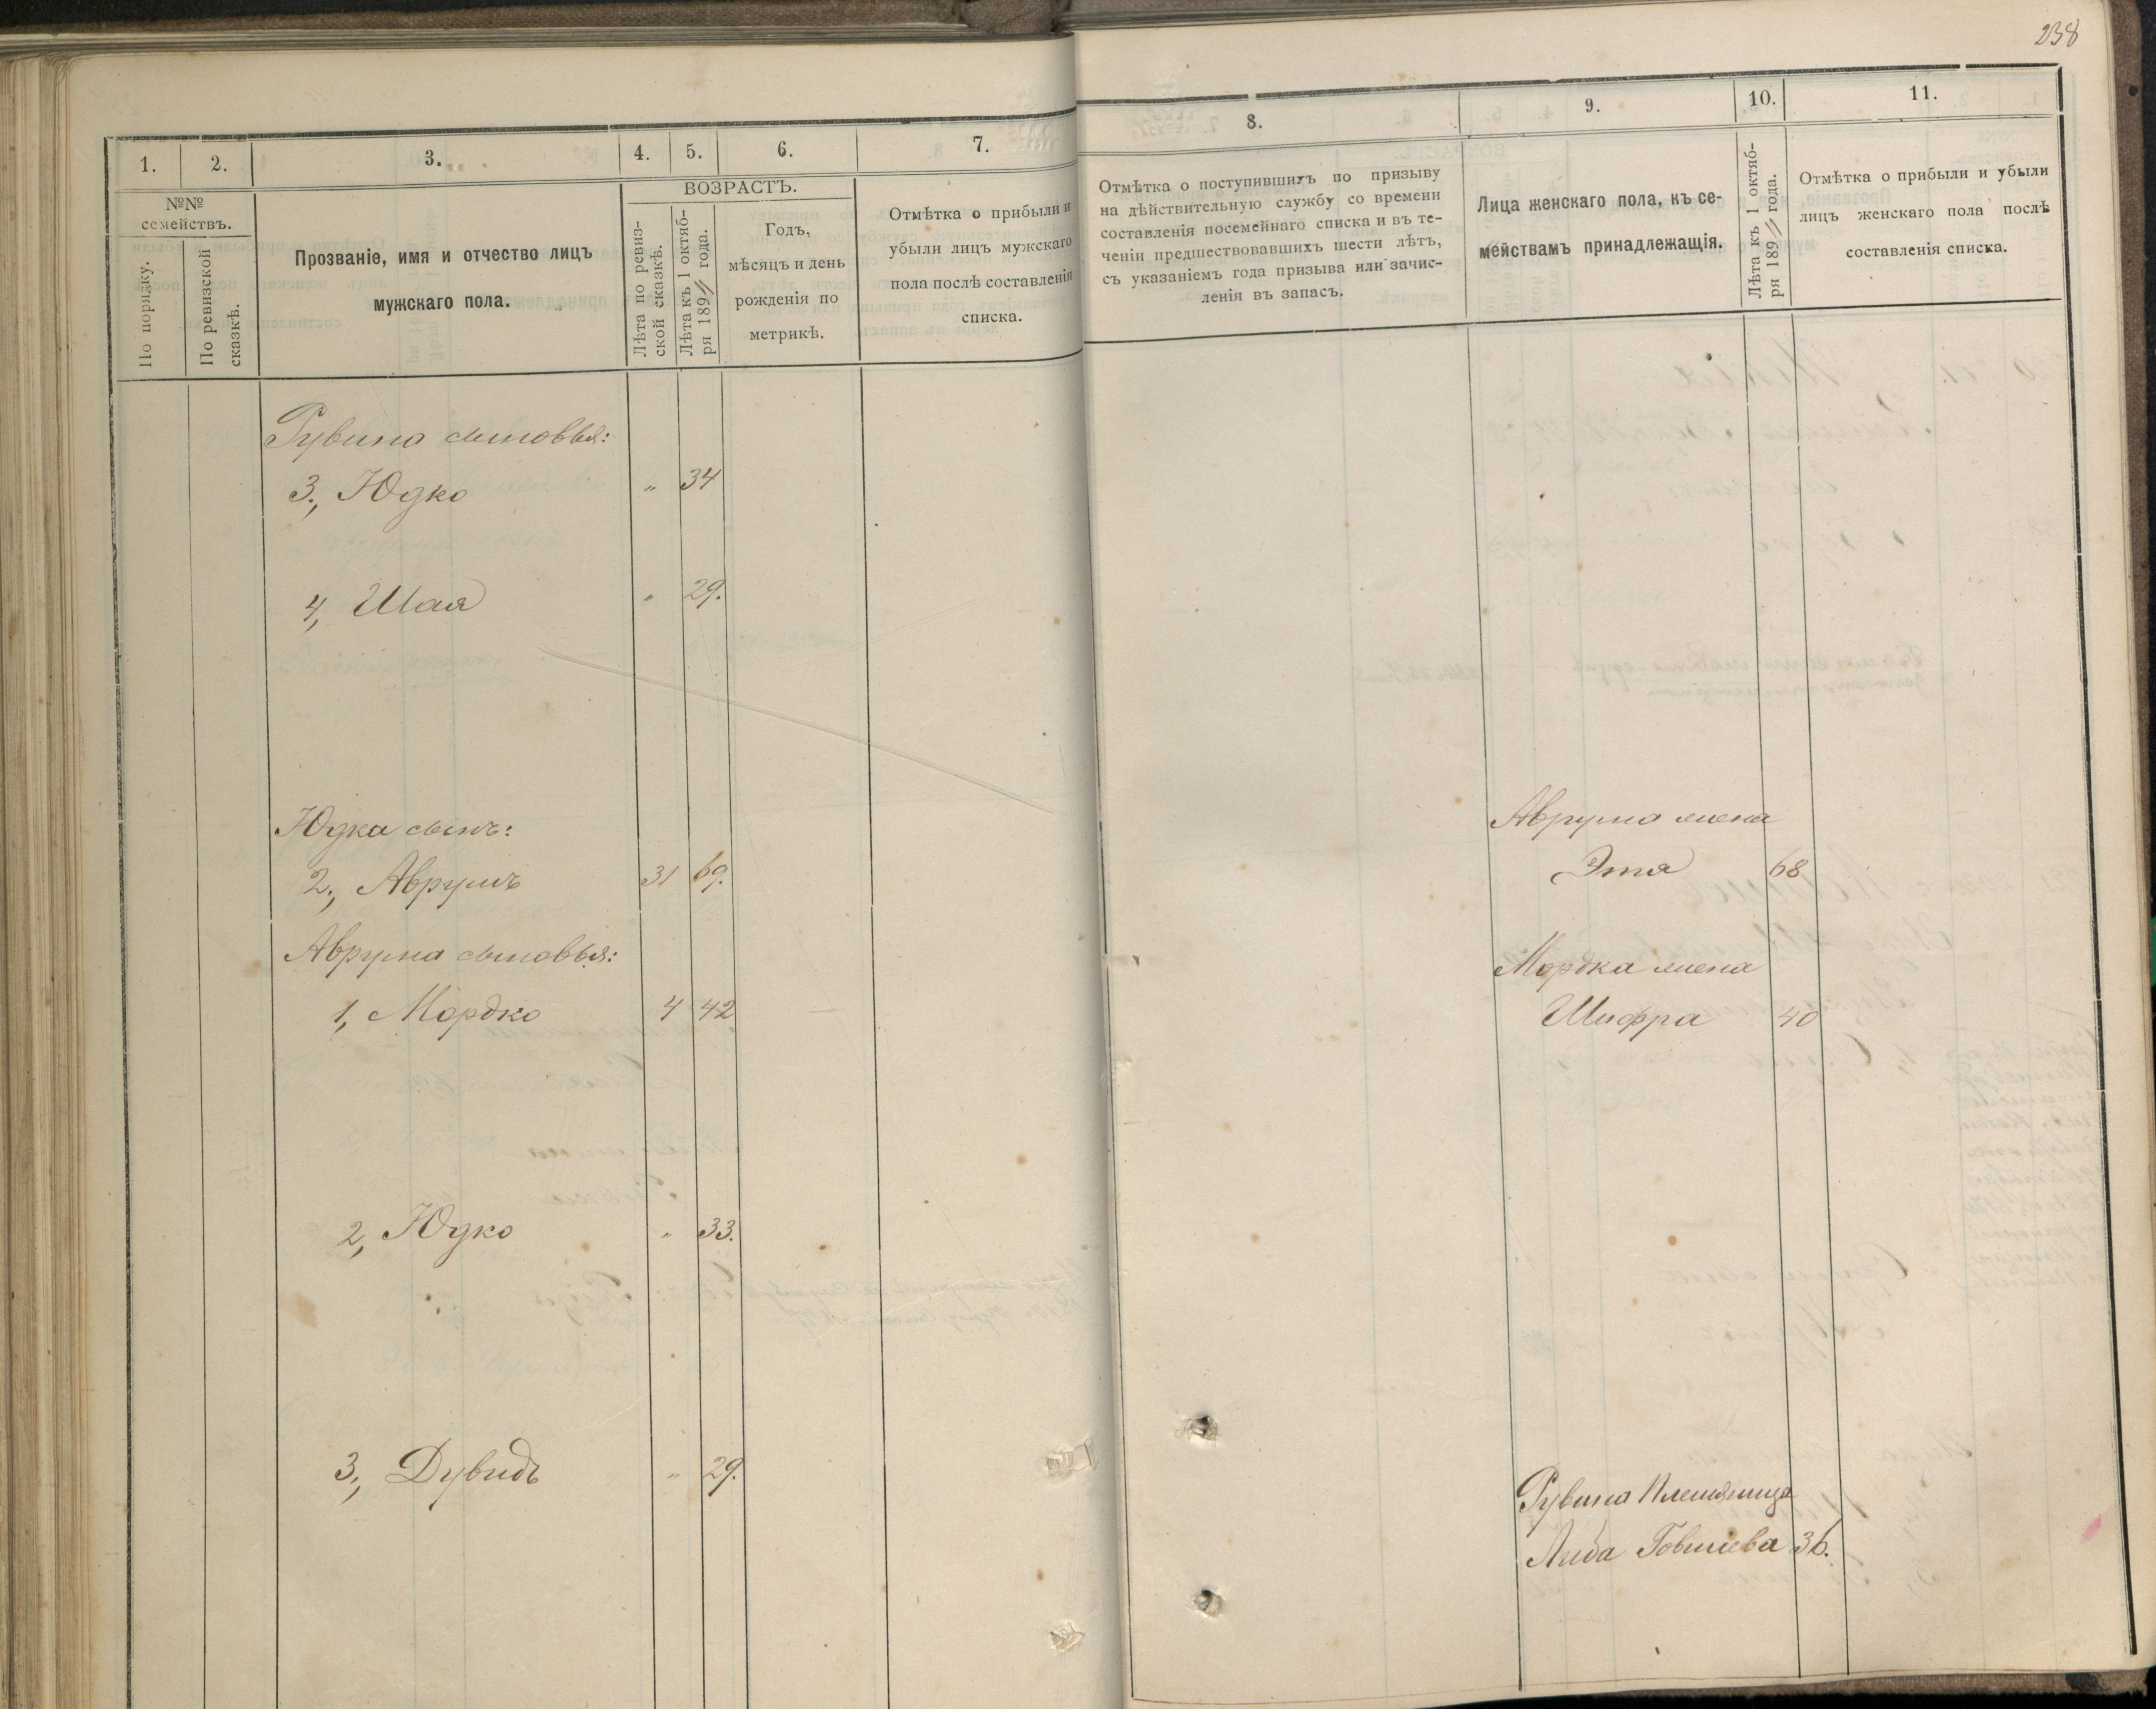 238
1. 2. 3. 4. 5. 6. 7.
№№ семействъ.
По порядку.
По ревизской сказкѣ.
Прозваніе, имя и отчество лицъ
мужскаго пола.
ВОЗРАСТЪ.
Лѣта по ревиз-
ской сказкѣ.
Лѣта къ 1 октяб-
ря 189 года.
Годъ,
мѣсяцъ и день
рожденія по
метрикѣ.
Отмѣтка о прибыли и
убыли лицъ мужскаго
пола послѣ составленія
списка.
8. 9. 10. 11.
Отмѣтка о поступившихъ по призыву
на дѣйствительную службу со времени
составленія посемейнаго списка и въ те-
ченіи предшествовавшихъ шести лѣтъ,
съ указаніемъ года призыва или зачис-
ленія въ запасъ.
Лица женскаго пола, къ се-
мействамъ принадлежащія.
Лѣта къ 1 октяб-
ря 189 года.
Отмѣтка о прибыли и убыли
лицъ женскаго пола послѣ
составленія списка.
Рувина сыновья:
3., Юдко " 34
4, Шая " 29.
Юдка сынъ:
2., Аврумъ 31 69.
Аврума сыновья:
1, Мордко 4 42
2, Юдко " 33.
3., Дувидъ " 29.
Аврума жена
Этя 68
Мордка жена
Шифра 40
Рувина Племяница
Либа Говшieва 36.